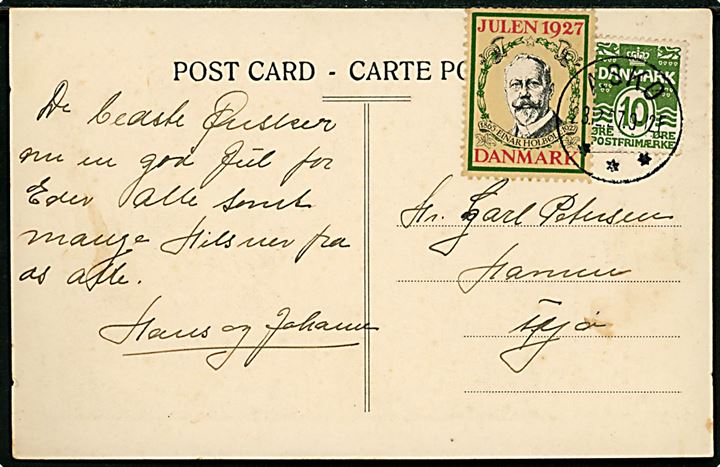 JULEN 1927
1865 EINAR HOLBØLL 1927
DANMARK
DANMARK
10
ØRE ØRE
POSTFRIMÆRKE
POST CARD - CARTE PO
De bedste Ønsker
om en god Jul for
Eder alle samt
mange Hilsner fra
os alle.
Hans og Johanne
Hr. Karl Petersen
Havnen